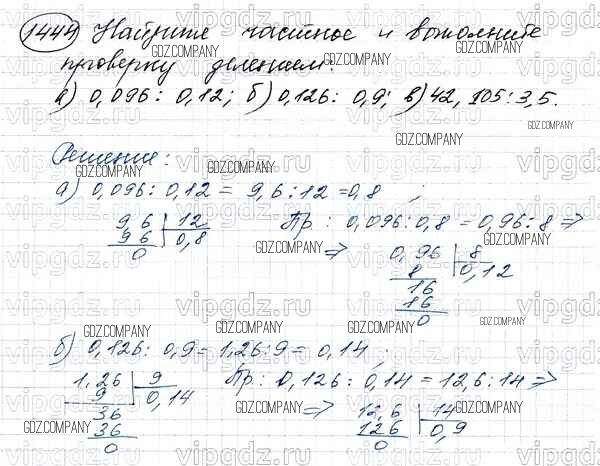 1444 Найдите частное и выполните
проверку делением:
а) 0,096 : 0,12; б) 0,126 : 0,9; в) 42,105 : 3,5.
Решение:
а) 0,096 : 0,12 = 9,6 : 12 = 0,8 ;
Пр.: 0,096 : 0,8 = 0,96 : 8 =>
9 6 | 12
9 6 | 0,8
0
=> 0,96 | 8
8 | 0,12
16
16
0
б) 0,126 : 0,9 = 1,26 : 9 = 0,14 ;
Пр.: 0,126 : 0,14 = 12,6 : 14 =>
1,26 | 9
9 | 0,14
36
36
0
=> 12,6 | 14
12 6 | 0,9
0
vipgdz.com
GDZ.COMPANY